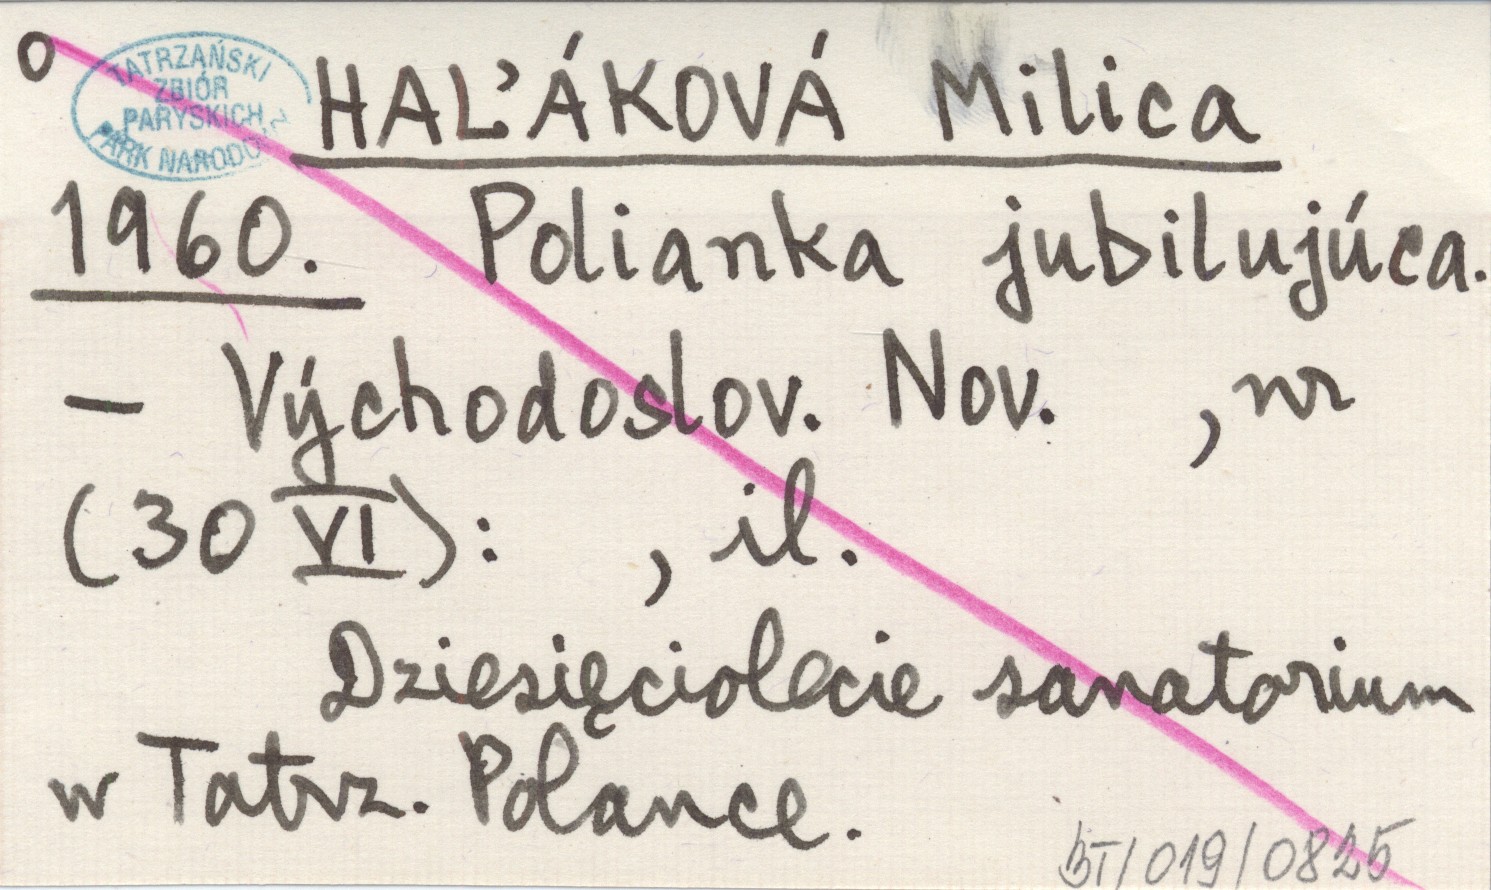 o
TATRZAŃSKI
ZBIÓR
PARYSKICH
PARK NARODO
HAĽÁKOVÁ Milica
1960. Polianka jubilujúca.
- Východoslov. Nov. , nr
(30 VI): , il.
Dziesięciolecie sanatorium
w Tatrz. Polance.
BT/019/0825